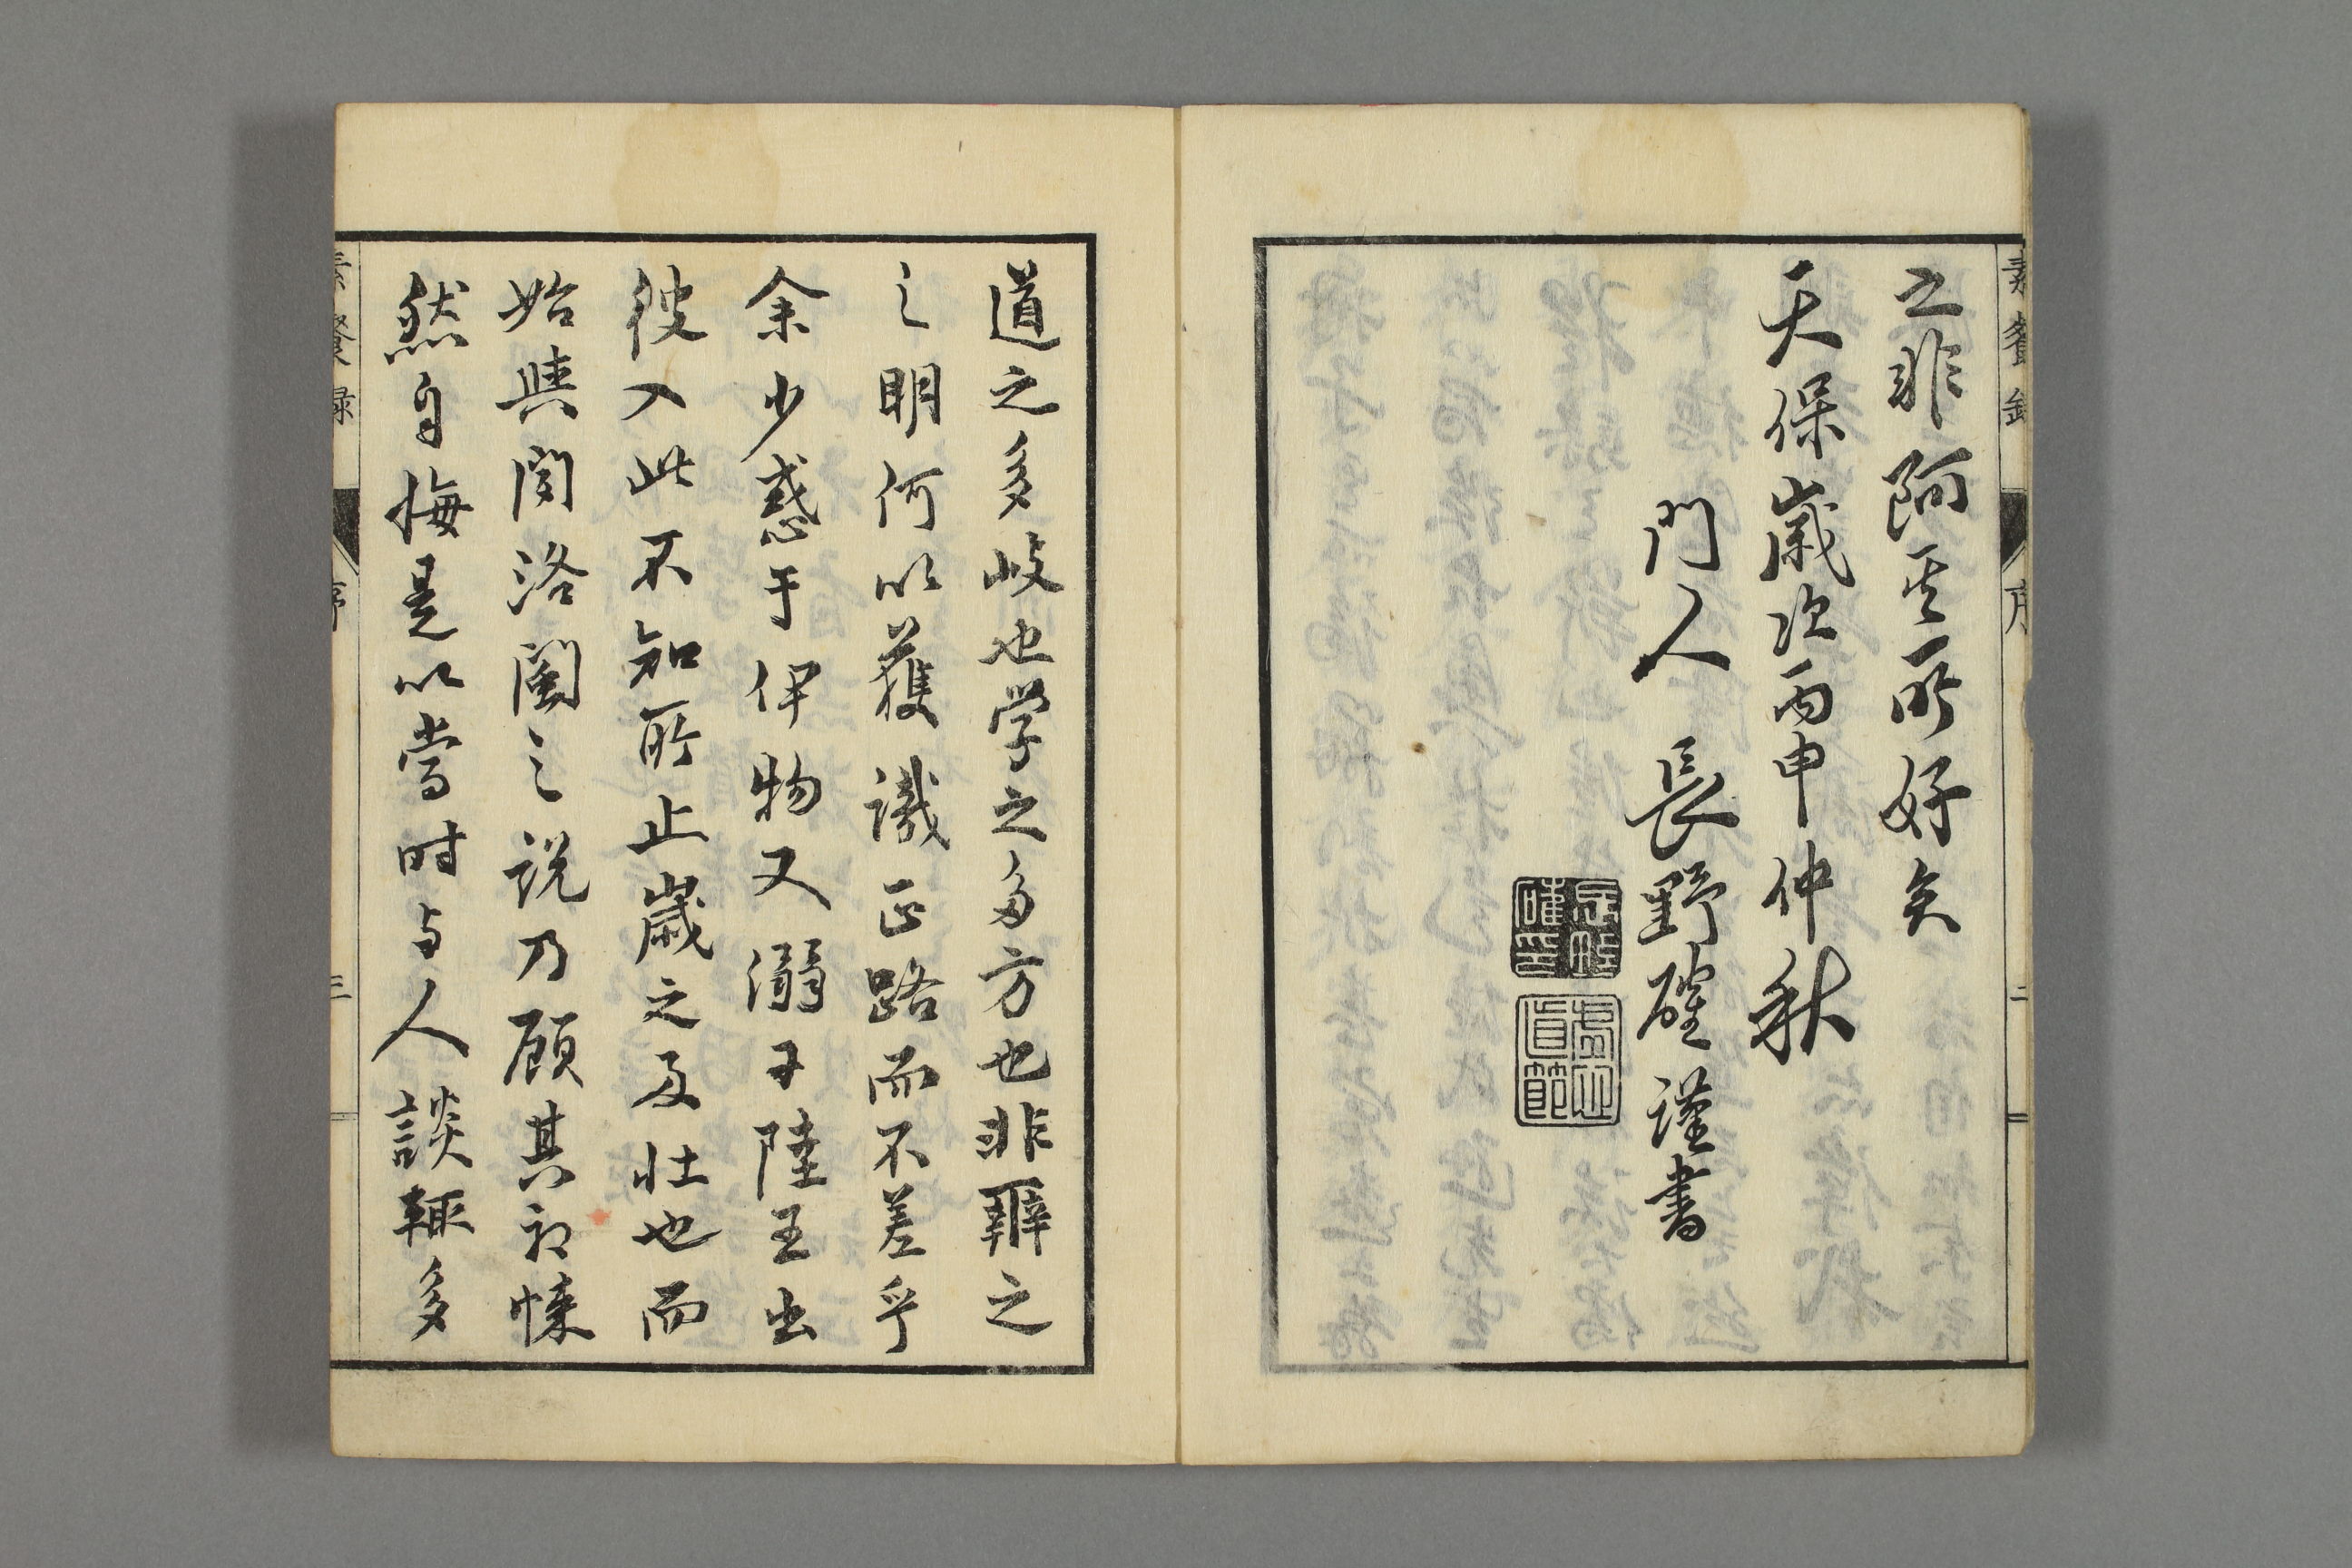 之非阿其所好矣
天保歳次丙申仲秋
門人 長野確謹書
道之多岐也学之多方也非辨之
之明何以獲識正路而不差乎
余少惑于伊物又溺于陸王出
彼入此不知所止歳之及壮也而
始與聞洛閩之説乃顧其初悚
然自悔是以當时与人談輙多
素餐録
序
三